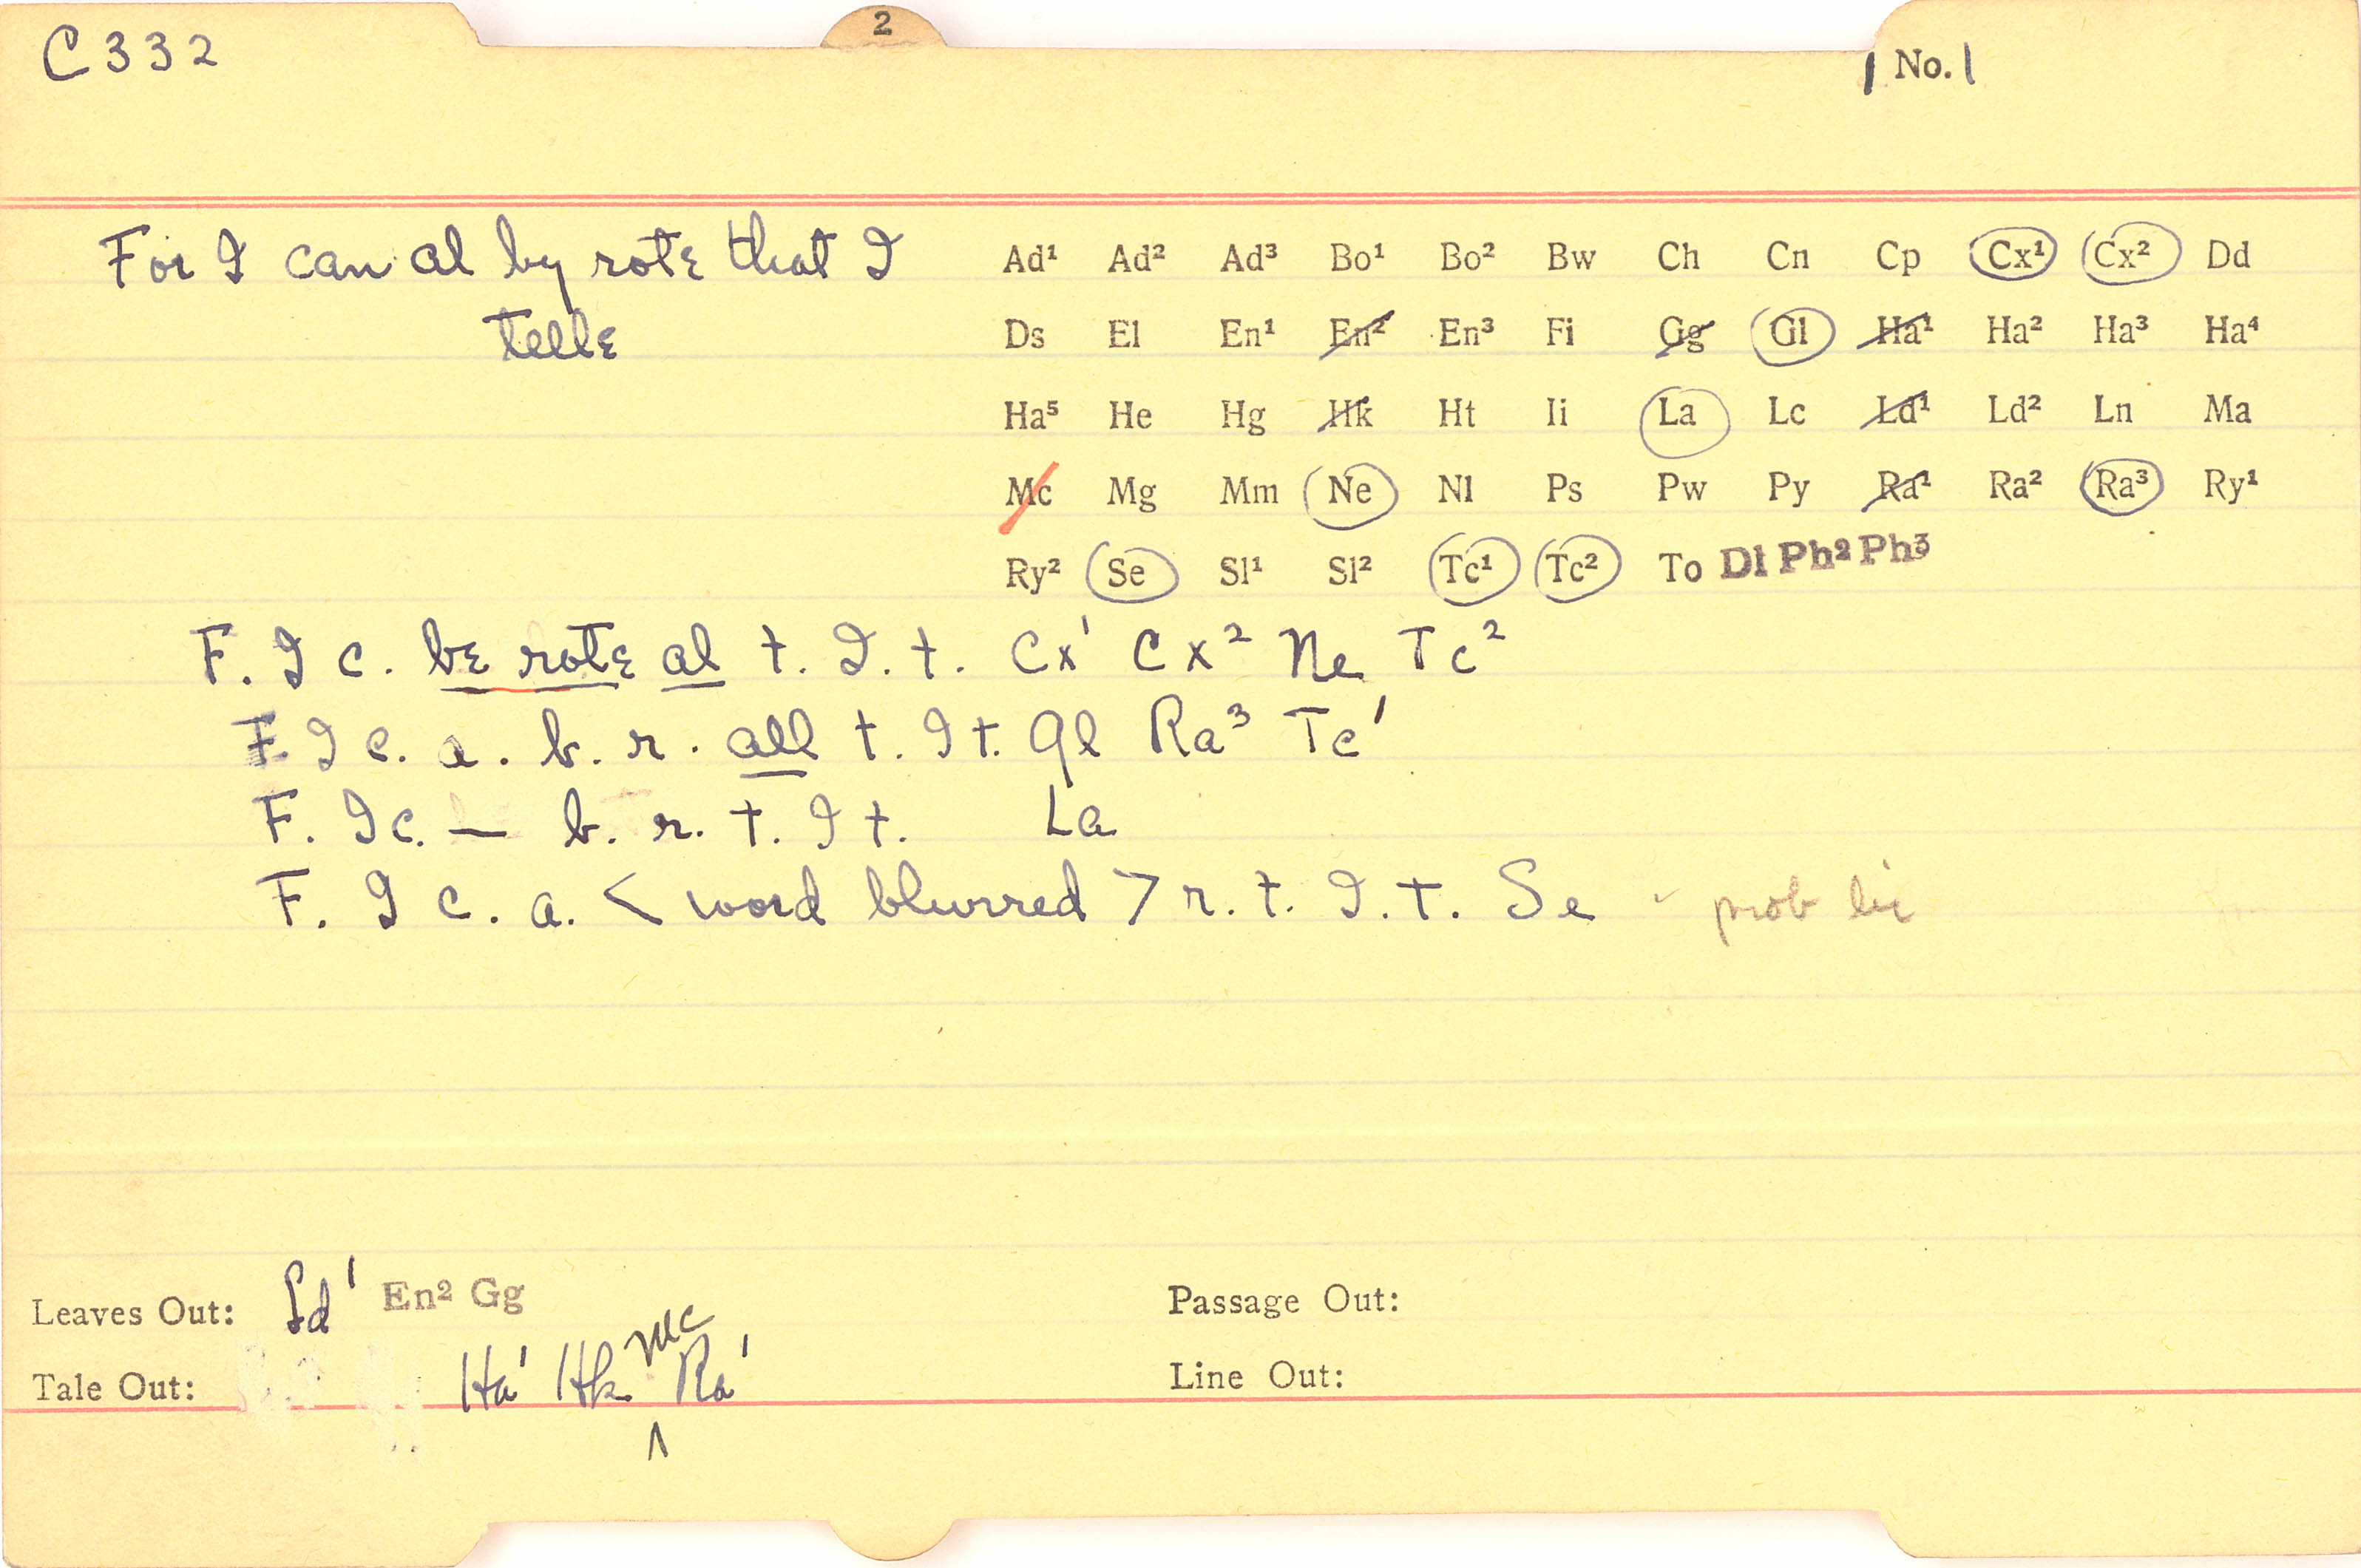 C332
2
1 No. 1
For I can al by rote that I
telle
Ad¹ Ad² Ad³ Bo¹ Bo² Bw Ch Cn Cp Cx¹ Cx² Dd
Ds El En¹ En² En³ Fi Gg Gl Ha¹ Ha² Ha³ Ha⁴
Ha⁵ He Hg Hk Ht Ii La Lc Ld¹ Ld² Ln Ma
Mc Mg Mm Ne Nl Ps Pw Py Ra¹ Ra² Ra³ Ry¹
Ry² Se Sl¹ Sl² Tc¹ Tc² To Dl Ph² Ph³
F. I c. be rote al t. I. t. Cx¹ Cx² Ne Tc²
F. I c. a. b. r. all t. I t. Gl Ra³ Tc¹
F. I c. — b. r. t. I t. La
F. I c. a. < word blurred > r. t. I. t. Se - prob
Leaves Out: Ld¹ En² Gg
Passage Out:
Tale Out: Ha¹ Hk ^ Mc Ra¹
Line Out: